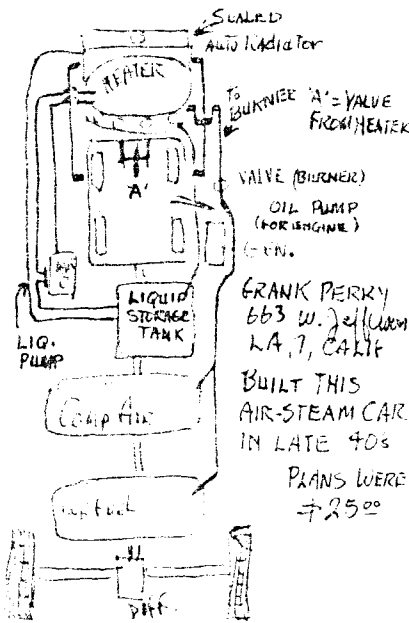 SEALED
AUTO Radiator
HEATER
TO
BURNER
'A' = VALVE
FROM HEATER
'A'
VALVE (BURNER)
OIL PUMP
(FOR ENGINE)
GEN.
LIQUID
STORAGE
TANK
LIQ.
PUMP
PERRY
663 W. Jefferson
LA, 7, CALIF
Comp Air
BUILT THIS
AIR-STEAM CAR
IN LATE 40s
PLANS WERE
fuel
DIFF.